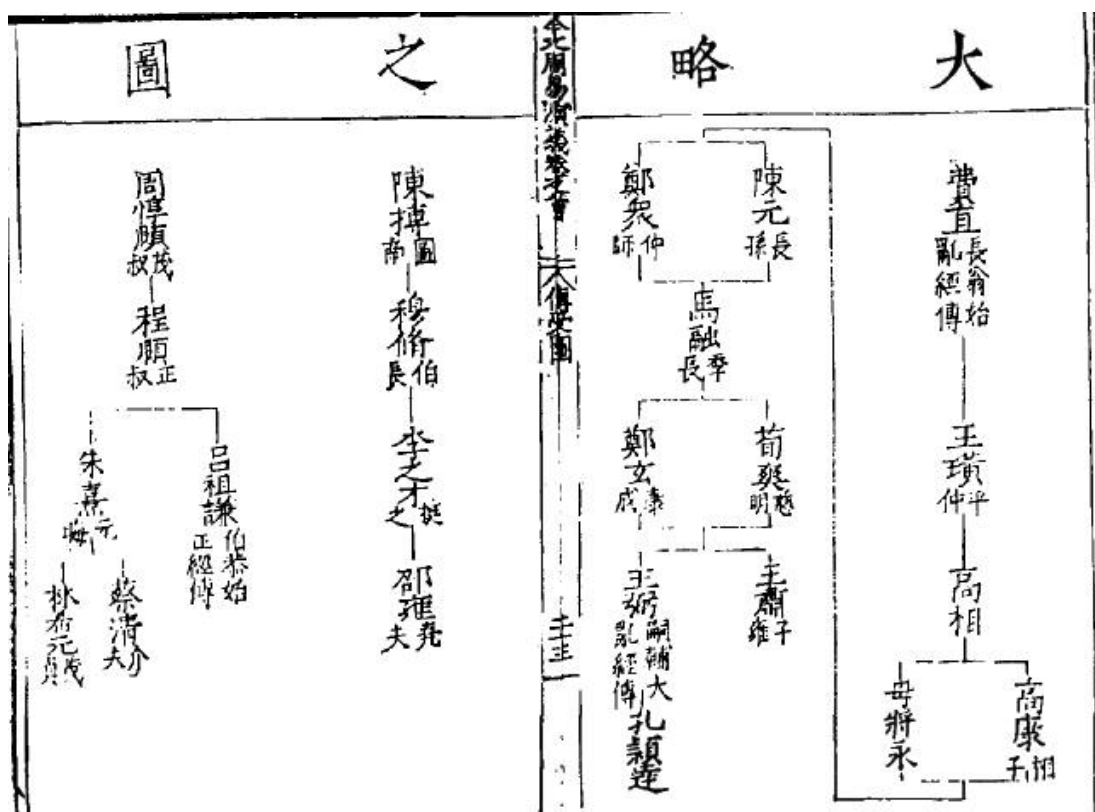 大
略
之
圖
費直 長翁始亂經傳
王璜 平仲
高相
高康 相子
毋將永
陳元 長孫
鄭眾 仲師
馬融 季長
荀爽 慈明
鄭玄 康成
王肅 子雍
王弼 嗣輔大亂經傳
孔頴達
古周易演義卷之首
大傳受圖
陳摶 圖南
穆脩 伯長
李之才 挺之
邵雍 堯夫
周惇頤 茂叔
程頤 正叔
呂祖謙 伯恭始正經傳
朱熹 元晦
蔡清 介夫
林希元 茂貞